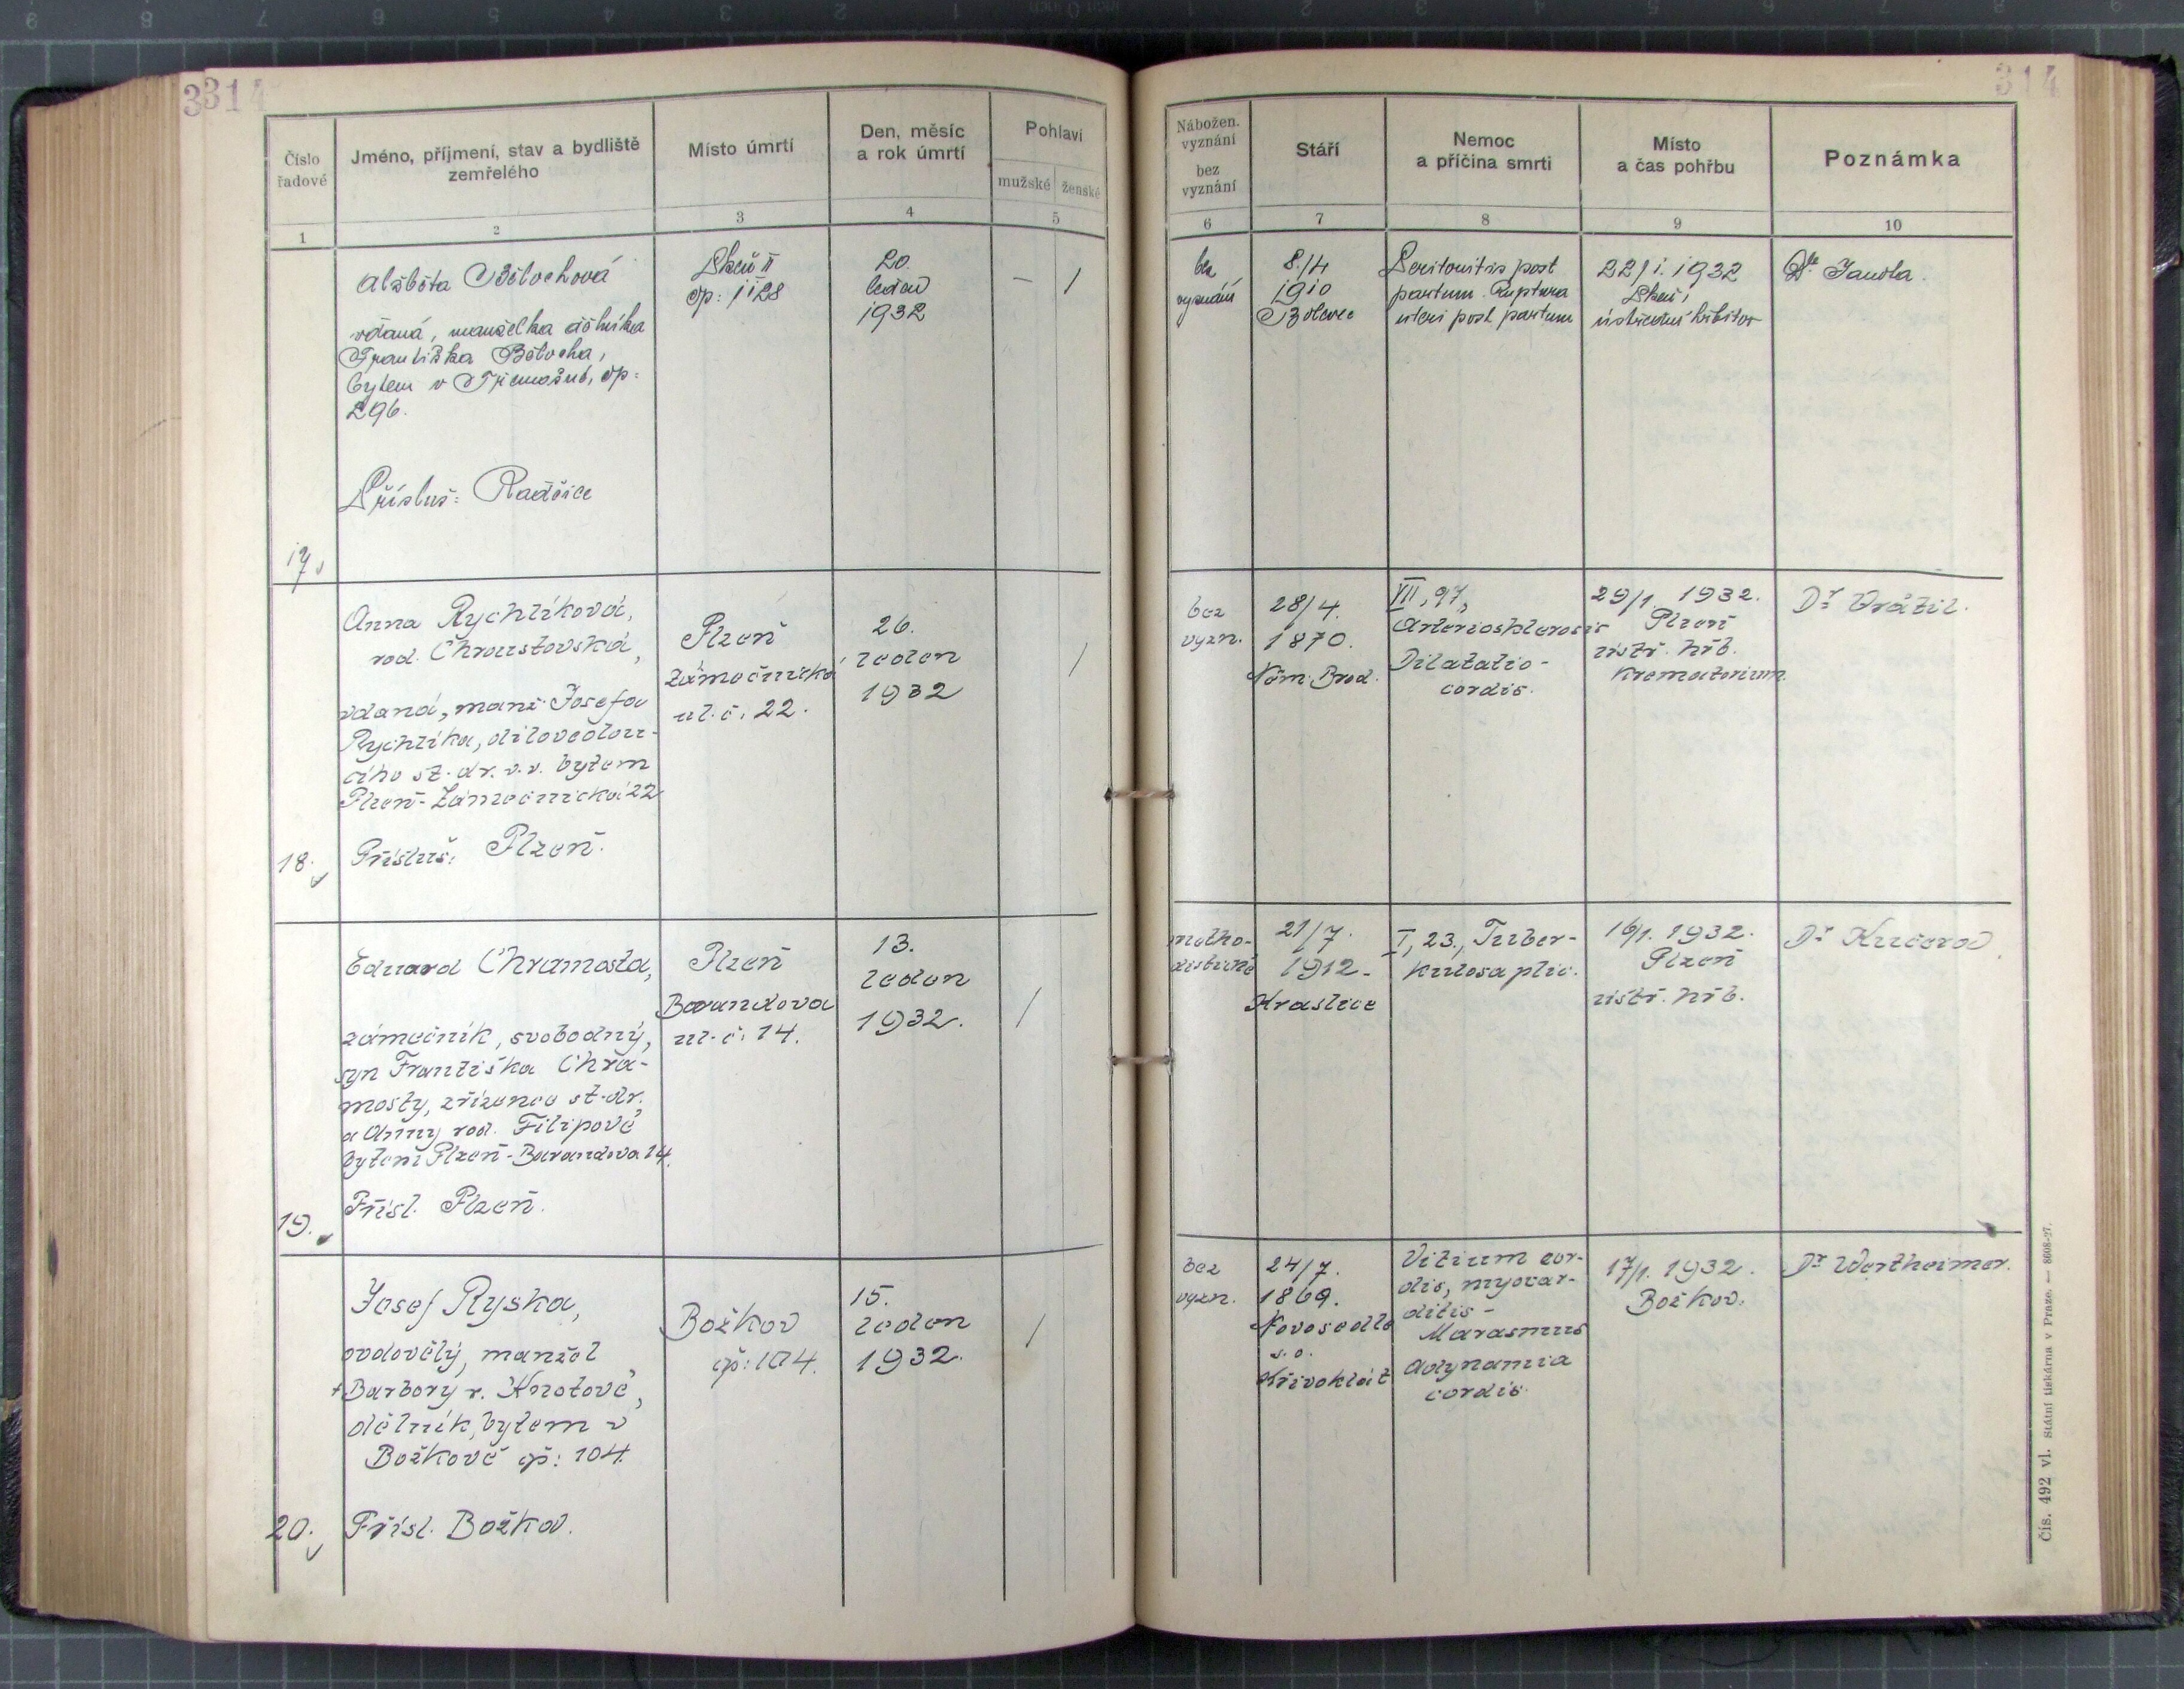 3314
314
Číslo
řadové
Jméno, příjmení, stav a bydliště
zemřelého
Místo úmrtí
Den, měsíc
a rok úmrtí
Pohlaví
mužské ženské
Nábožen.
vyznání
bez
vyznání
Stáří
Nemoc
a příčina smrti
Místo
a čas pohřbu
Poznámka
1 2 3 4 5 6 7 8 9 10
17.
Alžběta Bělochová
vdaná, manželka dělníka
Františka Bělocha,
bytem v Třemošné, čp:
296.
Přísluš: Radčice
Plzeň II
čp: 1128
20.
leden
1932
— /
bez
vyznání
8./4
1910
Bolevec
Peritonitis post
partum. Ruptura
uteri post partum
22/I. 1932
Plzeň,
ústřední hřbitov
Dr. Jandla.
18.
Anna Rychlíková,
roz. Chroustovská,
vdaná, manž. Josefa
Rychlíka, dílovedou-
cího st. dr. v. v. bytem
Plzeň-Zámečnická 22
Přísluš: Plzeň.
Plzeň
Zámečnická
ul. č. 22.
26.
leden
1932
/
bez
vyzn.
28/4.
1870.
Něm. Brod.
VII, 97,
Arteriosklerosis
Dilatatio-
cordis.
29/1. 1932.
Plzeň
ústř. hřb.
Krematorium.
Dr Vrátil.
19.
Eduard Chramosta,
zámečník, svobodný,
syn Františka Chra-
mosty, zřízence st. dr.
a Anny roz. Filipové
bytem Plzeň-Barandova 14.
Přísl. Plzeň.
Plzeň
Barandova
ul. č. 14.
13.
leden
1932.
/
metho-
distické
21/7.
1912.
Kraslice
I, 23., Tuber-
kulosa plic.
16/1. 1932.
Plzeň
ústř. hřb.
Dr Kučera
20.
Josef Ryska,
ovdovělý, manžel
† Barbory r. Knotové,
dělník, bytem v
Božkově čp: 104.
Přísl. Božkov.
Božkov
čp: 104.
15.
leden
1932.
/
bez
vyzn.
24/7.
1869.
Novosedlo
s. o.
Křivoklát
Vitium cor-
dis, myocar-
ditis-
Marasmus
Adynamia
cordis.
17/1. 1932.
Božkov.
Dr Wertheimer.
Čís. 492 vl. Státní tiskárna v Praze. — 8608-27.